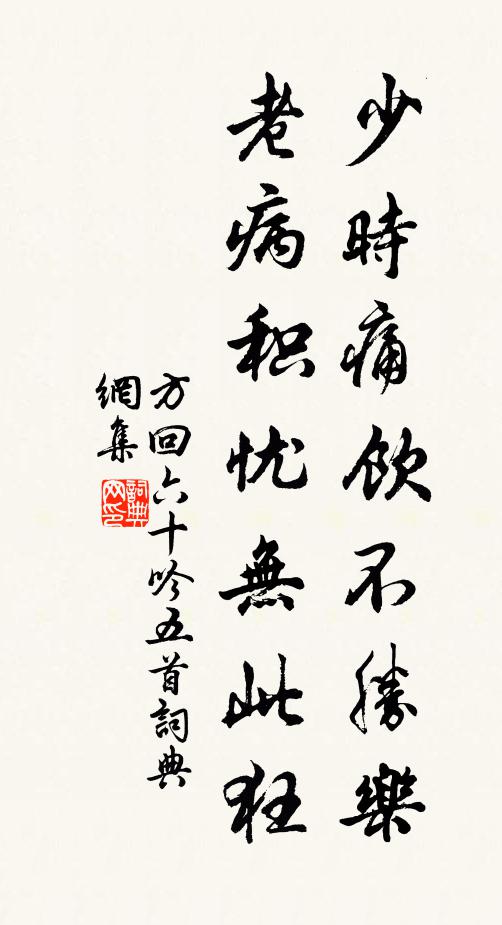 少時痛飲不勝樂
老病积忧無此狂
方回六十吟五首詞典
網集
詞典
网印